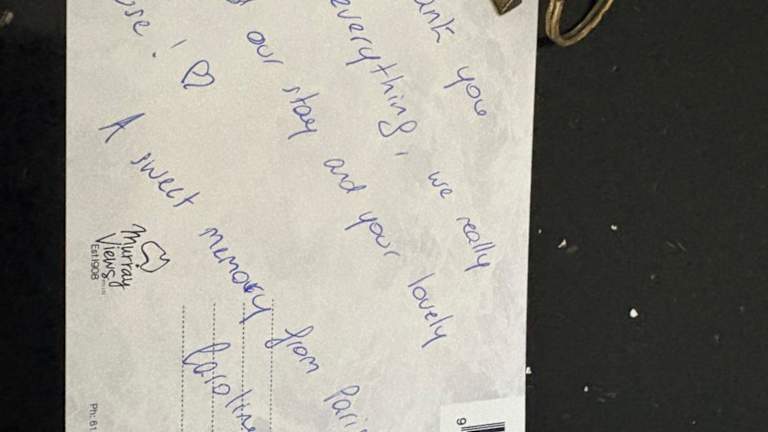 ank you
everything, we really
our stay and your lovely
! ♡
A sweet memory from Pari
Caroline
Murray
Views
Est.1908
Ph: 61
9